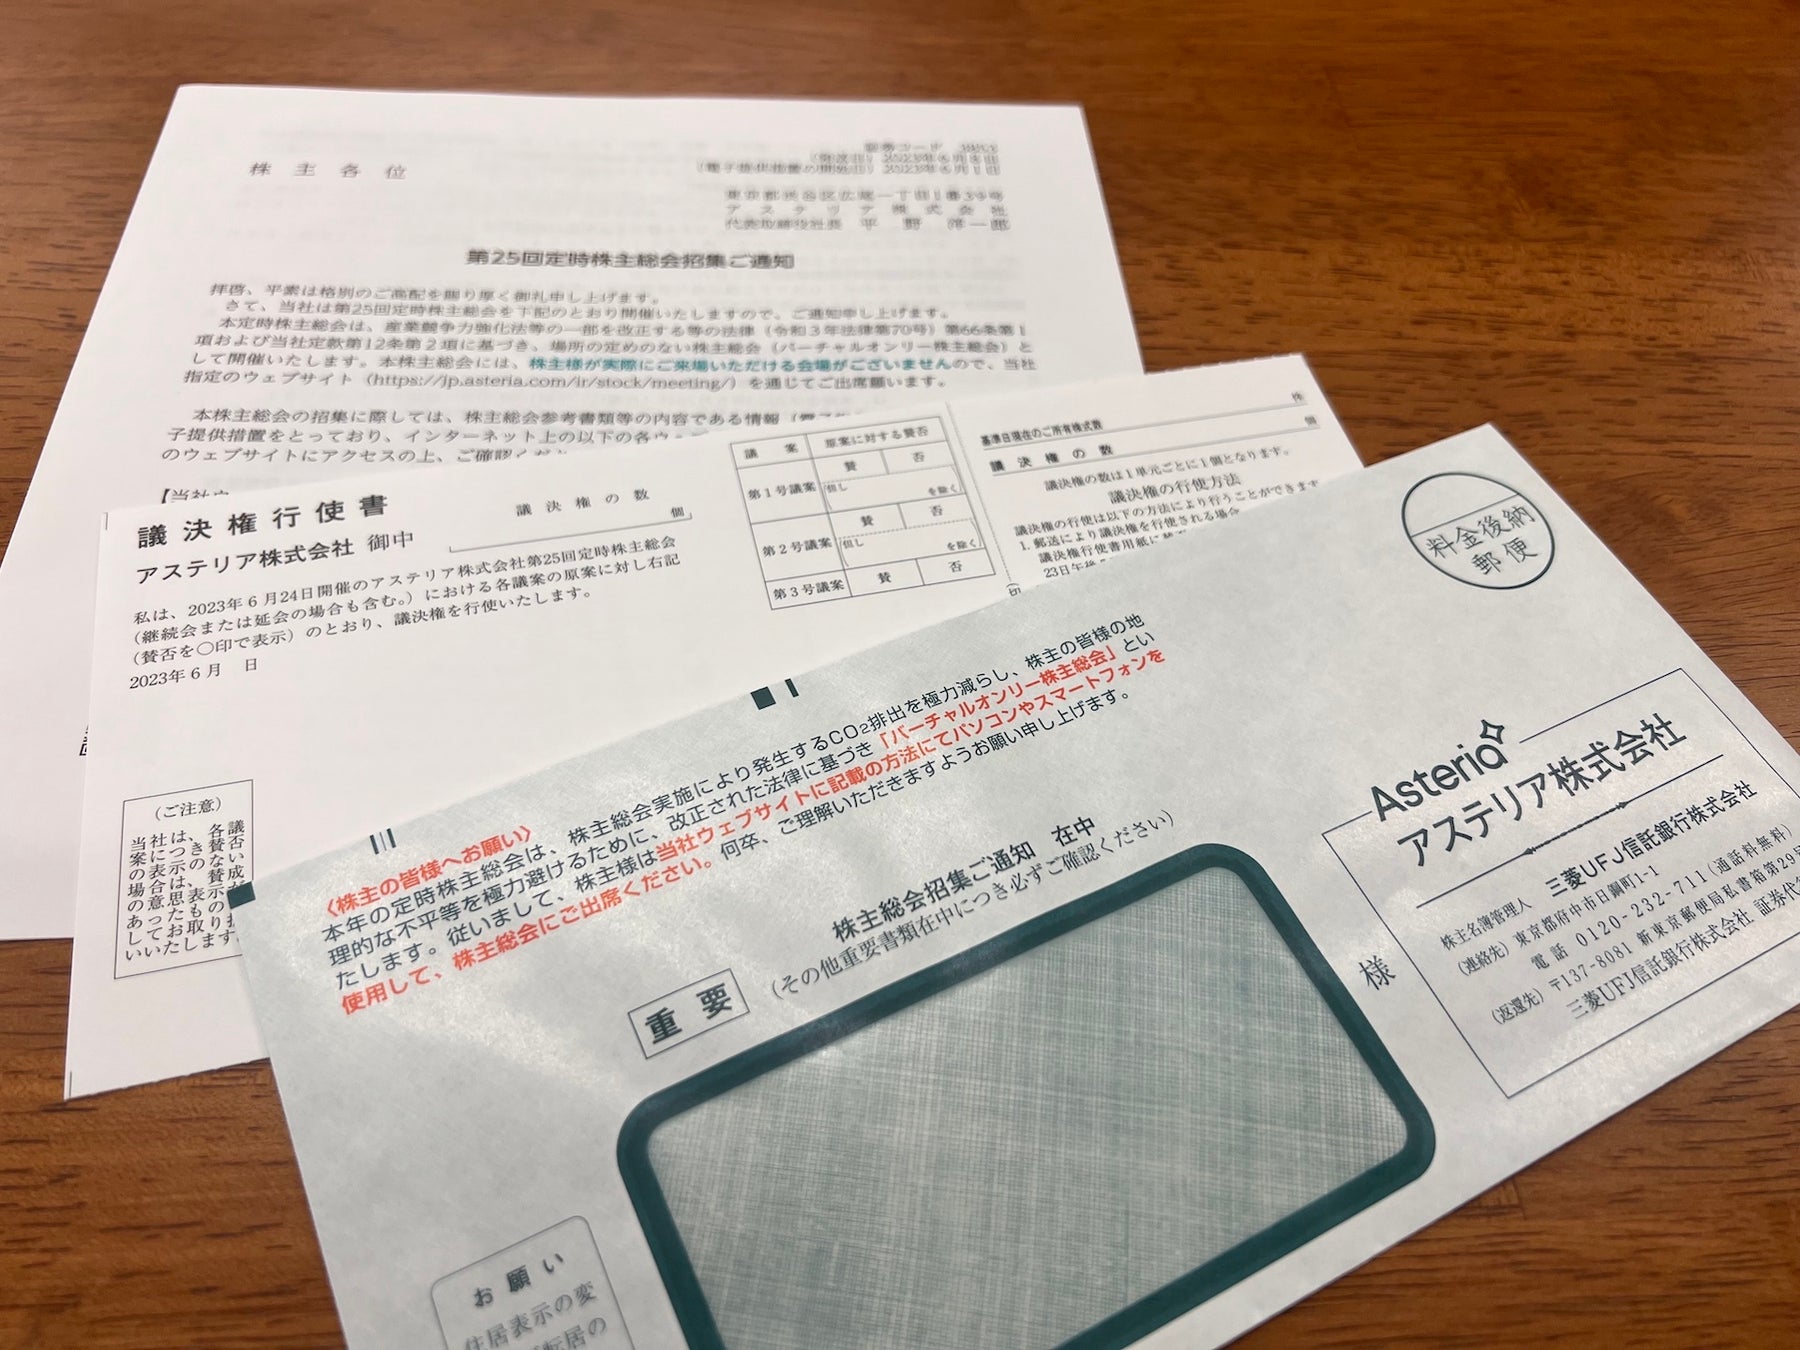 株主各位
証券コード 3853
（発送日）2023年6月8日
（電子提供措置の開始日）2023年6月1日
東京都渋谷区広尾一丁目1番39号
アステリア株式会社
代表取締役社長 平野 洋一郎
第25回定時株主総会招集ご通知
拝啓、平素は格別のご高配を賜り厚く御礼申し上げます。
さて、当社は第25回定時株主総会を下記のとおり開催いたしますので、ご通知申し上げます。
本定時株主総会は、産業競争力強化法等の一部を改正する等の法律（令和3年法律第70号）第66条第1
項および当社定款第12条第2項に基づき、場所の定めのない株主総会（バーチャルオンリー株主総会）と
して開催いたします。本株主総会には、株主様が実際にご来場いただける会場がございませんので、当社
指定のウェブサイト（https://jp.asteria.com/ir/stock/meeting/）を通じてご出席願います。
本株主総会の招集に際しては、株主総会参考書類等の内容である情報
子提供措置をとっており、インターネット上の以下の各ウェ
のウェブサイトにアクセスの上、ご確認くだ
【当社
議決権行使書
議決権の数
個
アステリア株式会社 御中
私は、2023年6月24日開催のアステリア株式会社第25回定時株主総会
（継続会または延会の場合も含む。）における各議案の原案に対し右記
（賛否を〇印で表示）のとおり、議決権を行使いたします。
2023年6月 日
議案 原案に対する賛否
第1号議案 賛 否
但し を除く
第2号議案 賛 否
但し を除く
第3号議案 賛 否
基準日現在のご所有株式数 株
議決権の数 個
議決権の数は1単元ごとに1個となります。
議決権の行使方法
議決権の行使は以下の方法により行うことができます
1. 郵送により議決権を行使される場合
議決権行使書用紙に
23日午後
印
（ご注意）
当社は、各議
案につき賛否
の表示のない
場合は、賛成
の意思表示が
あったものと
してお取り扱
いいたします。
料金後納
郵便
〈株主の皆様へお願い〉
本年の定時株主総会は、株主総会実施により発生するCO2排出を極力減らし、株主の皆様の地
理的な不平等を極力避けるために、改正された法律に基づき「バーチャルオンリー株主総会」とい
たします。従いまして、株主様は当社ウェブサイトに記載の方法にてパソコンやスマートフォンを
使用して、株主総会にご出席ください。何卒、ご理解いただきますようお願い申し上げます。
株主総会招集ご通知 在中
（その他重要書類在中につき必ずご確認ください）
重要
様
Asteria
アステリア株式会社
株主名簿管理人 三菱UFJ信託銀行株式会社
（連絡先）東京都府中市日鋼町1-1
電話 0120-232-711（通話料無料）
（返還先）〒137-8081 新東京郵便局私書箱第29号
三菱UFJ信託銀行株式会社 証券代
お願い
住居表示の変
転居の